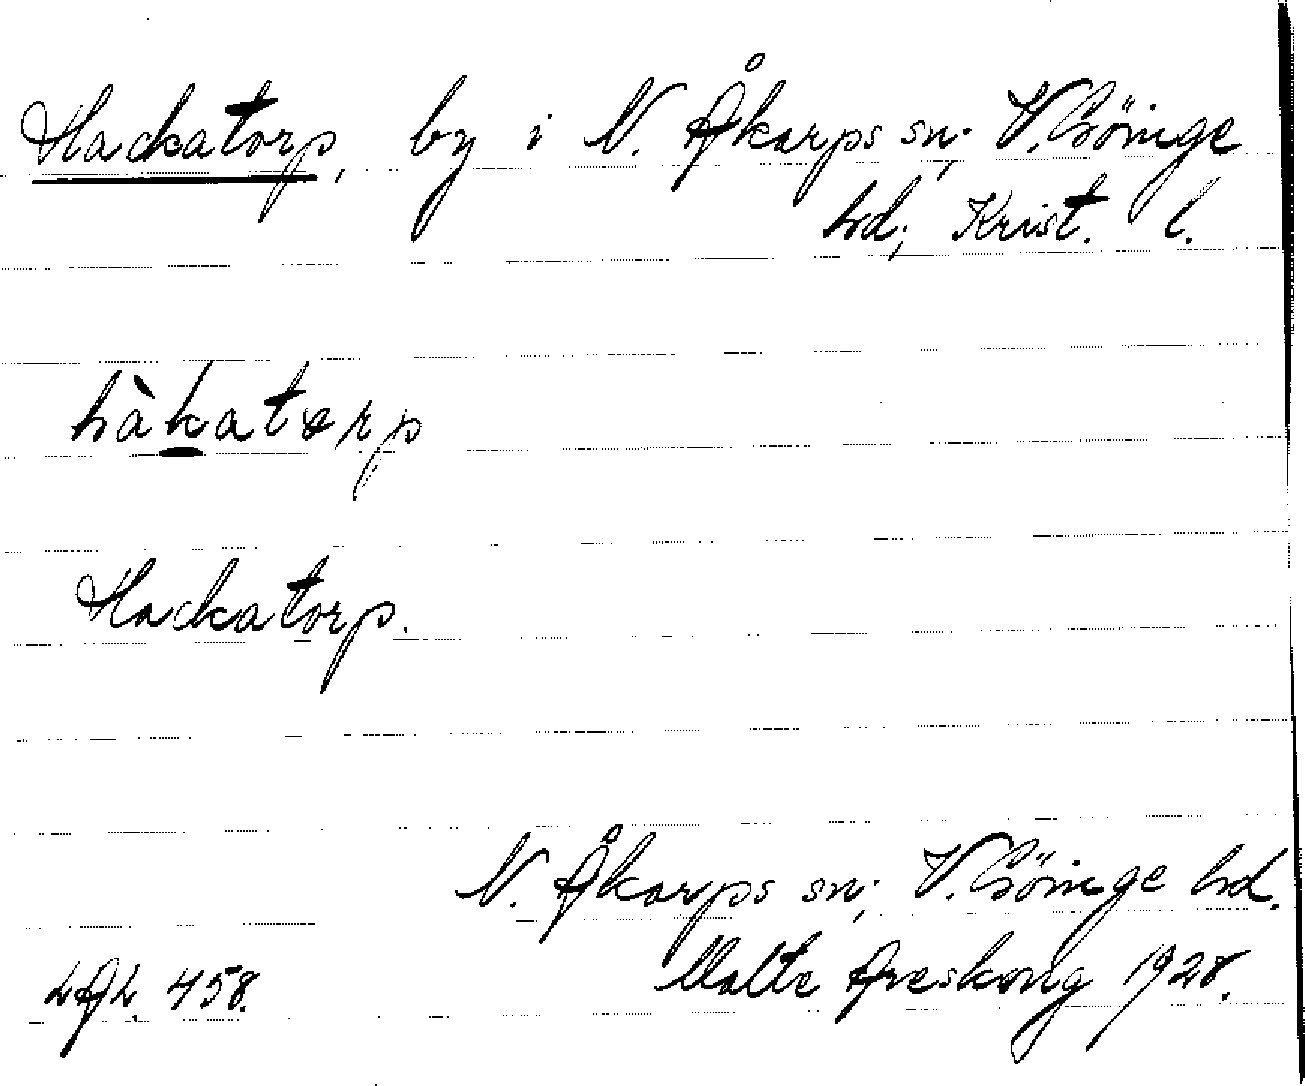 Hackatorp, by i N. Åkarps sn; V. Göinge
hd; Krist. l.
hàkatørp
Hackatorp.
N. Åkarps sn; V. Göinge hd.
LAL. 458. Malte Areskoug 1928.